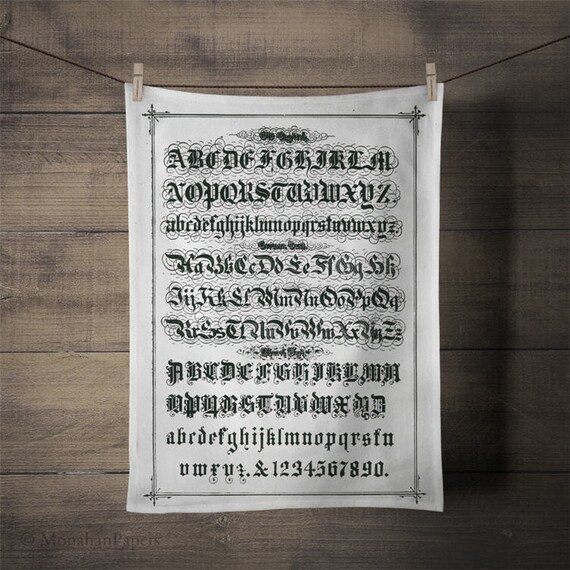 Old English.
ABCDEFGHIKLM
NOPQRSTUVWXYZ.
abcdefghijklmnopqrstuvwxyz.
German Text.
AaBbCcDdEeFfGgHh
IijKkLlMmNnOoPpQq
RrSsTtUuVvWwXxYyZz
ABCDEFGHIKLMN
OPQRSTUVWXYZ
abcdefghijklmnopqrstu
vwxyz. & 1234567890.
© MonahanPapers